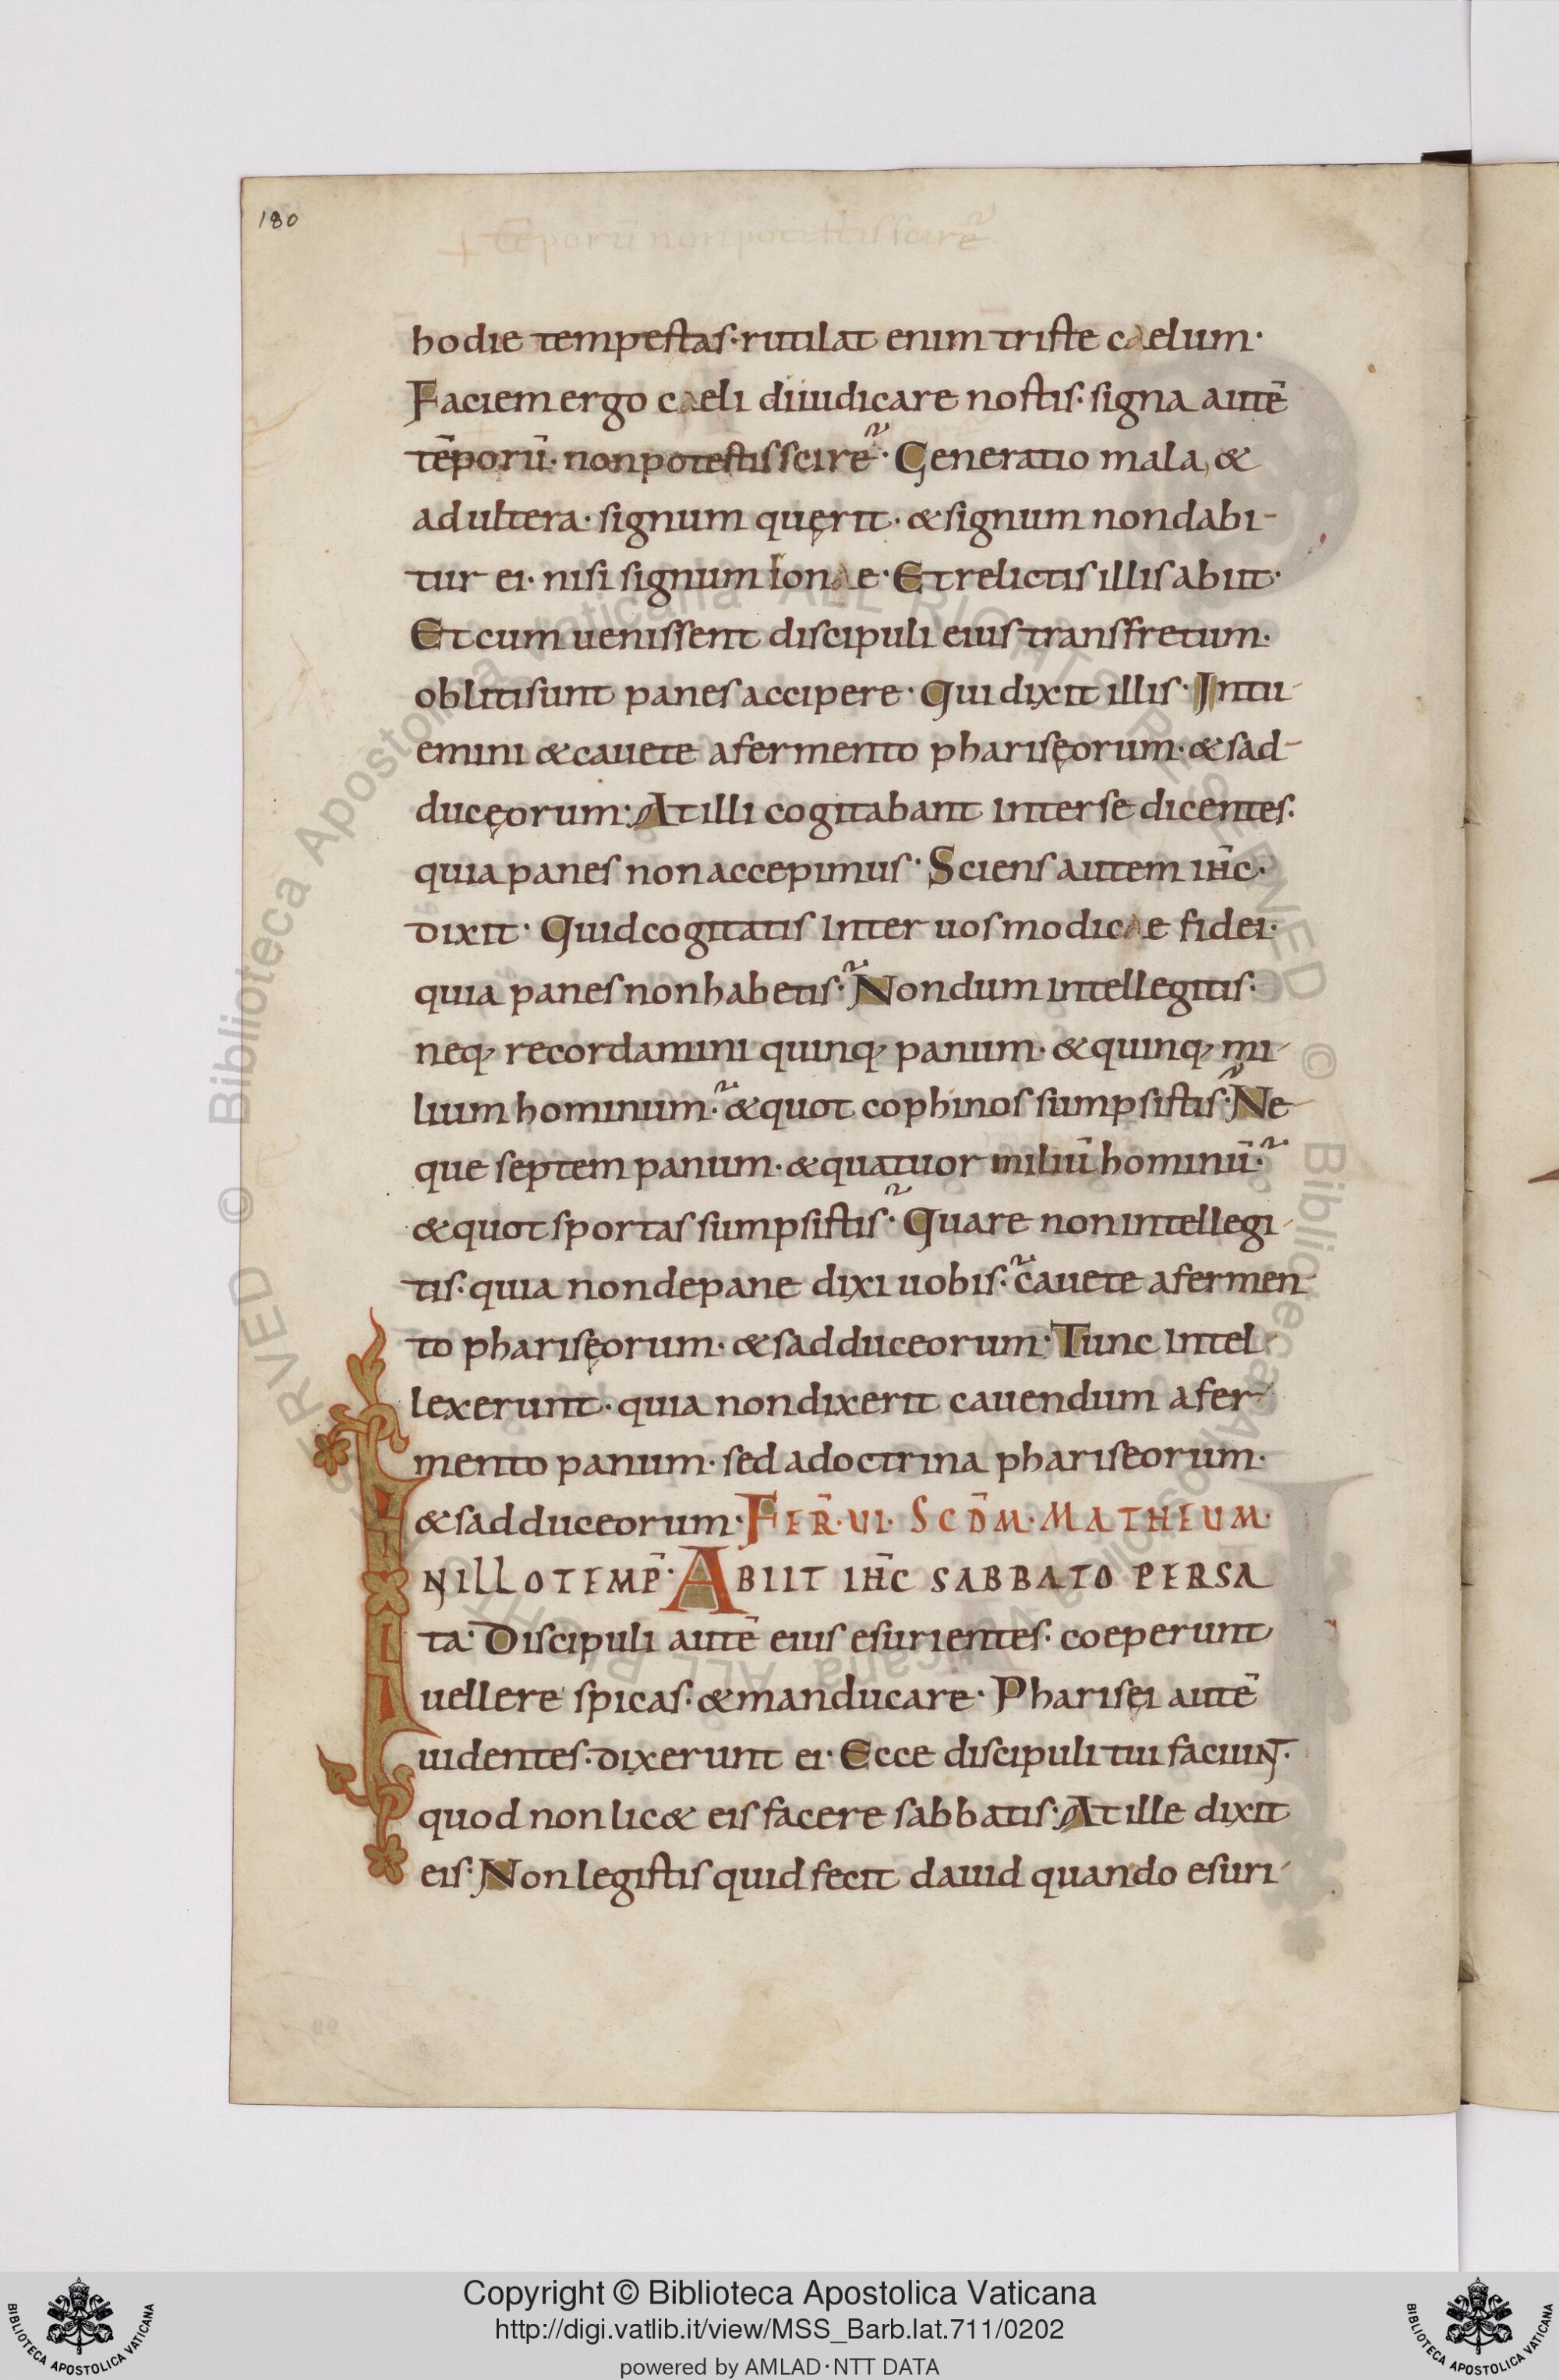 180
+ tēporū non potestis scire
hodie tempestas· rutilat enim triste caelum·
Faciem ergo caeli diiudicare nostis· signa autē
tēporū· non potestis scire· Generatio mala, &
adultera· signum quęrit· & signum non dabi-
tur ei· nisi signum ionae· Et relictis illis abiit·
Et cum uenissent discipuli eius trans fretum·
obliti sunt panes accipere· Qui dixit illis· Intu-
emini & cauete a fermento pharisęorum· & sad-
ducęorum· At illi cogitabant inter se dicentes·
quia panes non accepimus· Sciens autem ih̄c·
dixit· Quid cogitatis inter uos modicae fidei·
quia panes non habetis· Nondum intellegitis·
neq, recordamini quinq, panum· & quinq, mi-
lium hominum· & quot cophinos sumpsistis· Ne-
que septem panum· & quatuor miliū hominū·
& quot sportas sumpsistis· Quare non intellegi-
tis· quia non de pane dixi uobis· cauete a fermen-
to pharisęorum· & sadduceorum· Tunc intel-
lexerunt· quia non dixerit cauendum a fer-
mento panum· sed a doctrina phariseorum·
& sadduceorum· FER̄· VI· SCD̄M· MATHEUM·
IN ILLO TEMP̄· ABIIT IH̄C SABBATO PER SA
ta· Discipuli autē eius esurientes· coeperunt
uellere spicas· & manducare· Pharisęi autē
uidentes· dixerunt ei· Ecce discipuli tui faciuNT·
quod non lic& eis facere sabbatis· At ille dixit
eis· Non legistis quid fecit dauid quando esuri-
© Biblioteca Apostolica Vaticana ALL RIGHTS RESERVED
Copyright © Biblioteca Apostolica Vaticana
http://digi.vatlib.it/view/MSS_Barb.lat.711/0202
powered by AMLAD·NTT DATA
BIBLIOTECA APOSTOLICA VATICANA
BIBLIOTECA APOSTOLICA VATICANA